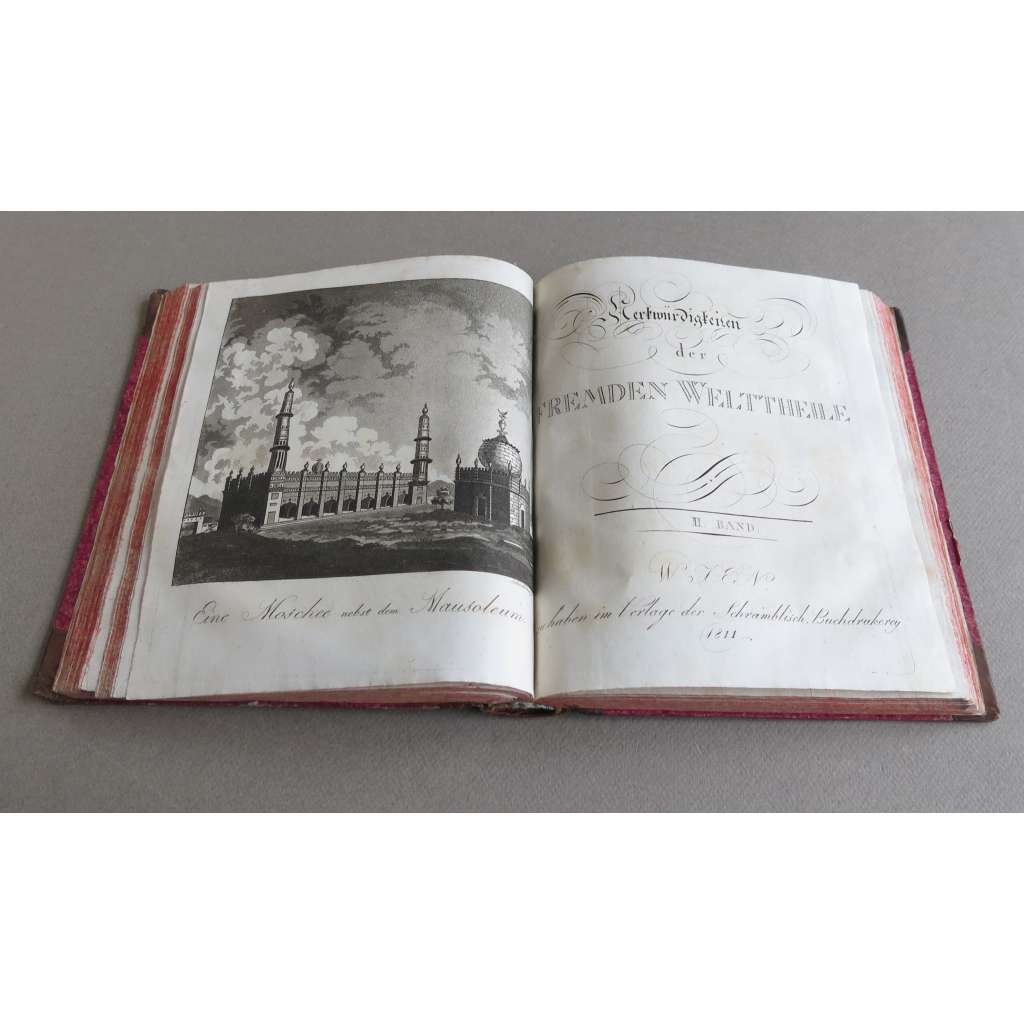 Eine Moschee nebst dem Mausoleum
Merkwürdigkeiten
der
FREMDEN WELTTHEILE
II. BAND.
WIEN
haben im Verlage der Schrämblisch. Buchdrukerey
1811.